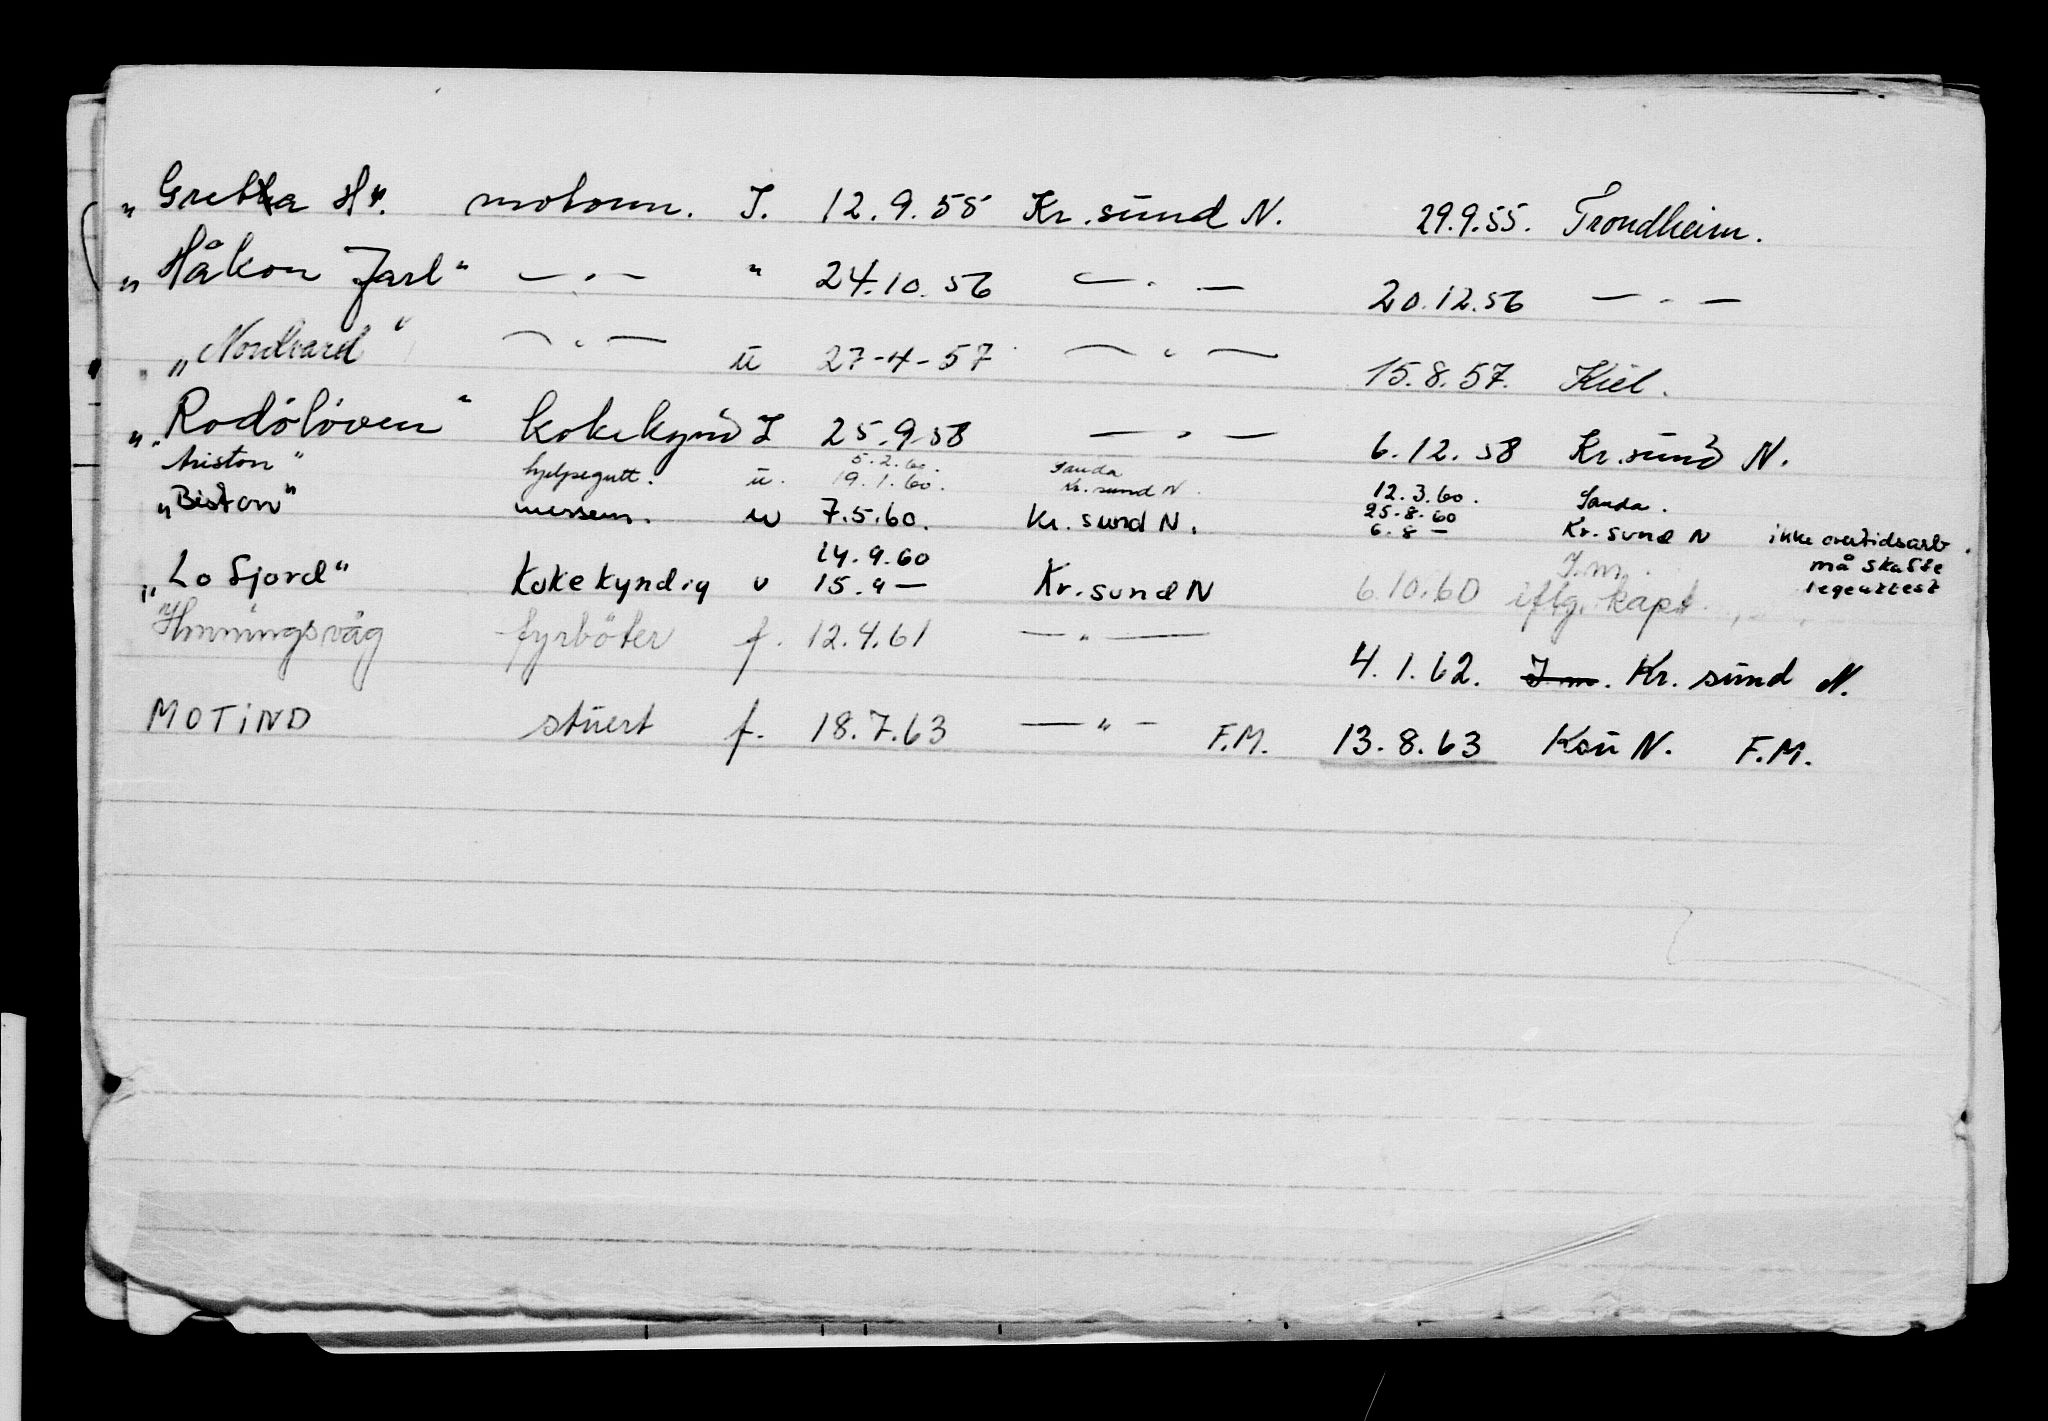 „ Gretha H". motorm. I. 12.9.55 Kr.sund N. 29.9.55. Trondheim.
„ Håkon Jarl" — . — " 24.10.56 — . — 20.12.56 — . —
„Nordvard" — . — u 27-4-57 — . — 15.8.57. Kiel.
„ Rodöløven" kokekynd I 25.9.58 — . — 6.12.58 Kr.sund N.
5.2.60. Sauda
Ariston" hjelpegutt. u. 19.1.60. Kr.sund N. 12.3.60. Sauda.
25.8.60
„Biston" messem. u 7.5.60. Kr. sund N. 6.8 — Kr. sund N ikke overtidsarb.
14.9.60 I.m. må skaffe
„Lofjord" Kokekyndig u 15.9 — Kr. sund N 6.10.60 iflg. kapt. legeattest
Honningsvåg fyrböter f. 12.4.61 — " — 4.1.62. I.m. Kr. sund N.
MOTIND stuert f. 18.7.63 — " — F.M. 13.8.63 Ksu N. F.M.